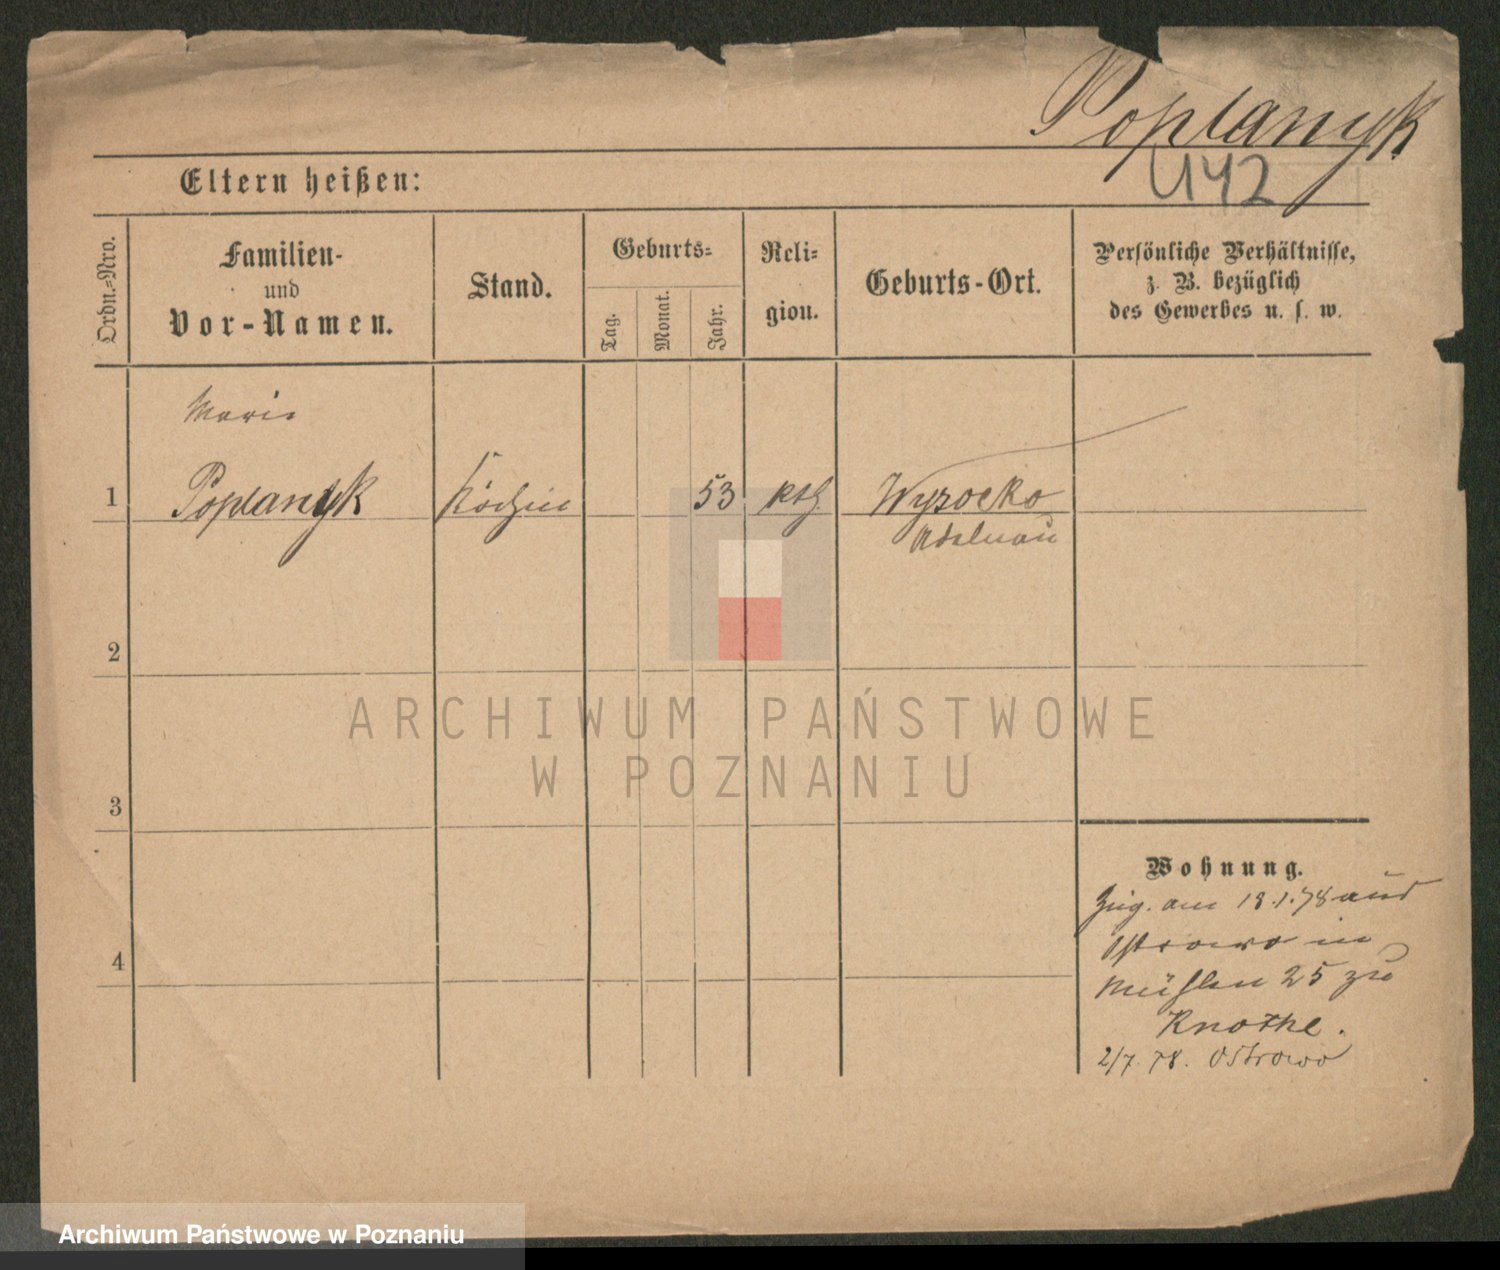 Poplanyk
U42
Eltern heißen:
Ordn.-Nro.
Familien-
und
Vor-Namen.
Stand.
Geburts-
Tag.
Monat.
Jahr.
Reli-
gion.
Geburts-Ort.
Persönliche Verhältnisse,
z. B. bezüglich
des Gewerbes u. s. w.
Marie
1 Poplanyk Köchin 53 kth. Wysocko
Adelnau
2
3
4
Wohnung.
Zug. am 18.1.78 aus
Ostrowo in
Mühlen 25 zu
Knothe.
2/7. 78. Ostrowo
ARCHIWUM PAŃSTWOWE
W POZNANIU
Archiwum Państwowe w Poznaniu